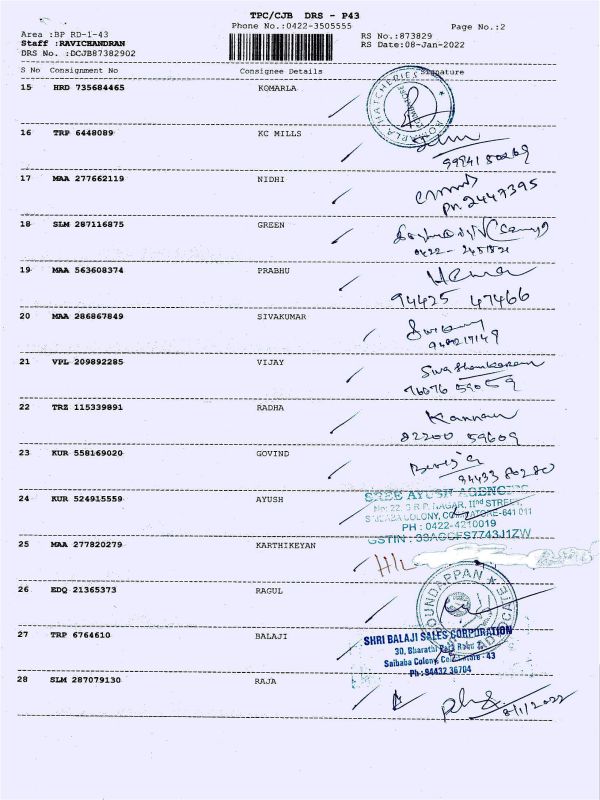 TPC/CJB DRS - P43
Phone No.:0422-3505555
Page No.:2
Area :BP RD-1-43
RS No.:873829
Staff :RAVICHANDRAN
RS Date:08-Jan-2022
DRS No. :DCJB87382902
S No Consignment No Consignee Details Signature
15 HRD 735684465 KOMARLA
16 TRP 6448089 KC MILLS
17 MAA 277662119 NIDHI
Ph. 2447395
18 SLM 287116875 GREEN
19 MAA 563608374 PRABHU
Hema
94425 47466
20 MAA 286867849 SIVAKUMAR
21 VPL 209892285 VIJAY
Sivashankaran
76076 59059
22 TRZ 115339891 RADHA
Kannan
82200 59609
23 KUR 558169020 GOVIND
94433 80280
24 KUR 524915559 AYUSH
SREE AYUSH AGENCIES
No: 22, S.R.P. NAGAR, IInd STREET,
SAIBABA COLONY, COIMBATORE-641 011
PH : 0422-4210019
GSTIN : 33AGCFS7743J1ZW
25 MAA 277820279 KARTHIKEYAN
26 EDQ 21365373 RAGUL
27 TRP 6764610 BALAJI
SHRI BALAJI SALES CORPORATION
30, Bharathi Park Road
Saibaba Colony, Coimbatore - 43
Ph : 94432 36704
28 SLM 287079130 RAJA
8/1/2022